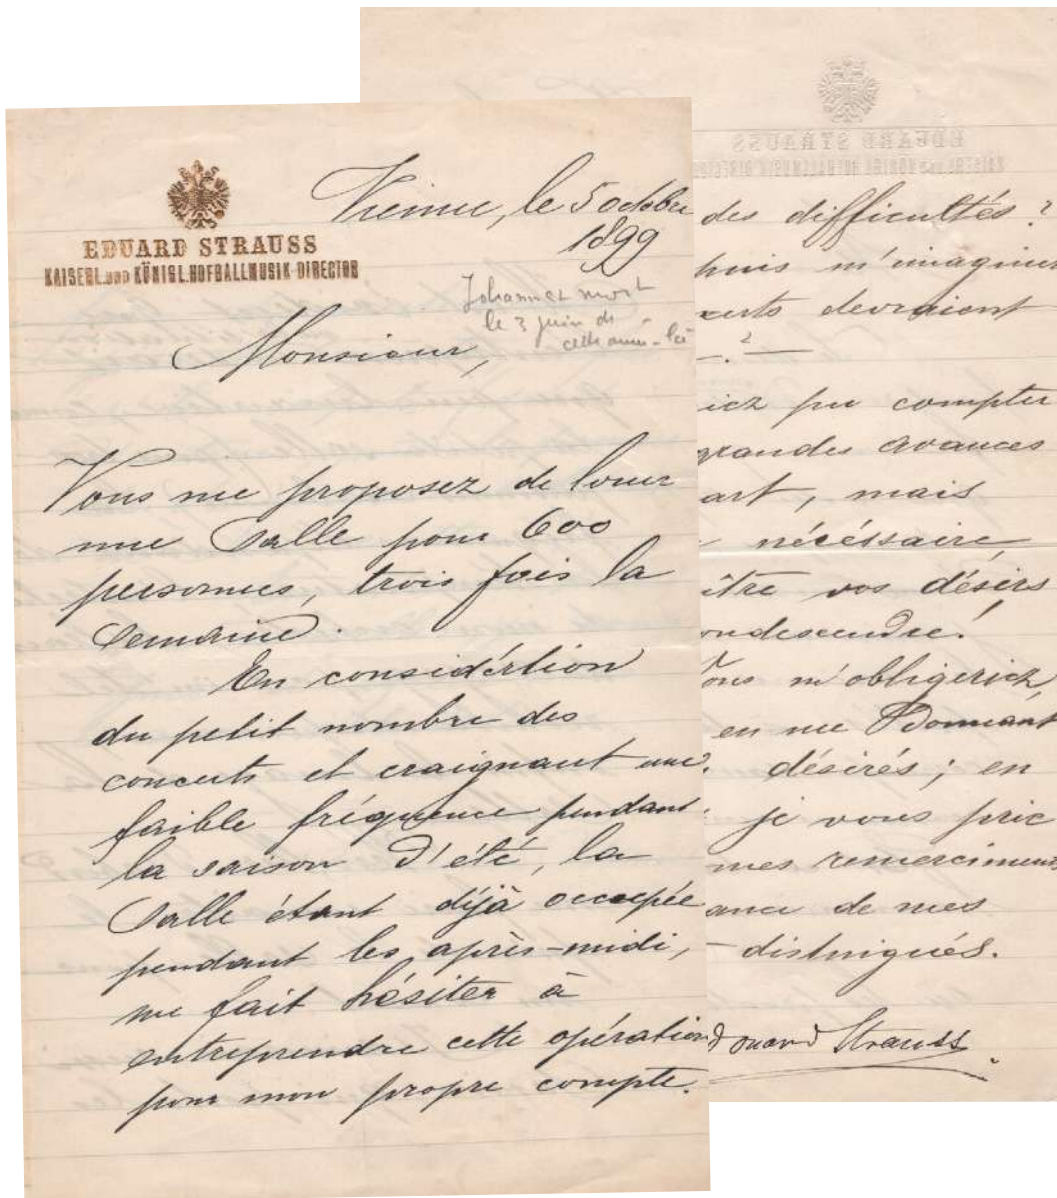 EDUARD STRAUSS
KAISERL. UND KÖNIGL. HOFBALLMUSIK-DIRECTOR
Vienne, le 5 octobre
1899
Johannes mort
le 3 juin de
cette année-là
Monsieur,
Vous me proposez de louer
une Salle pour 600
personnes, trois fois la
Semaine.
En considértion
du petit nombre des
concerts et craignant une
faible fréquence pendant
la saison d'été, la
Salle étant déjà occupée
pendant les après-midi,
me fait hésiter à
entreprendre cette opération
pour mon propre compte.
EDUARD STRAUSS
KAISERL. UND KÖNIGL. HOFBALLMUSIK-DIRECTOR
des difficultés?
puis m'imaginer
certs devraient
?
iez pu compter
grandes avances
art, mais
nécéssaire
ître vos désirs
ondescendre!
Vous m'obligeriez,
en me Donnant
désirés; en
je vous prie
mes remerciments
ance de mes
distingués.
douard Strauss